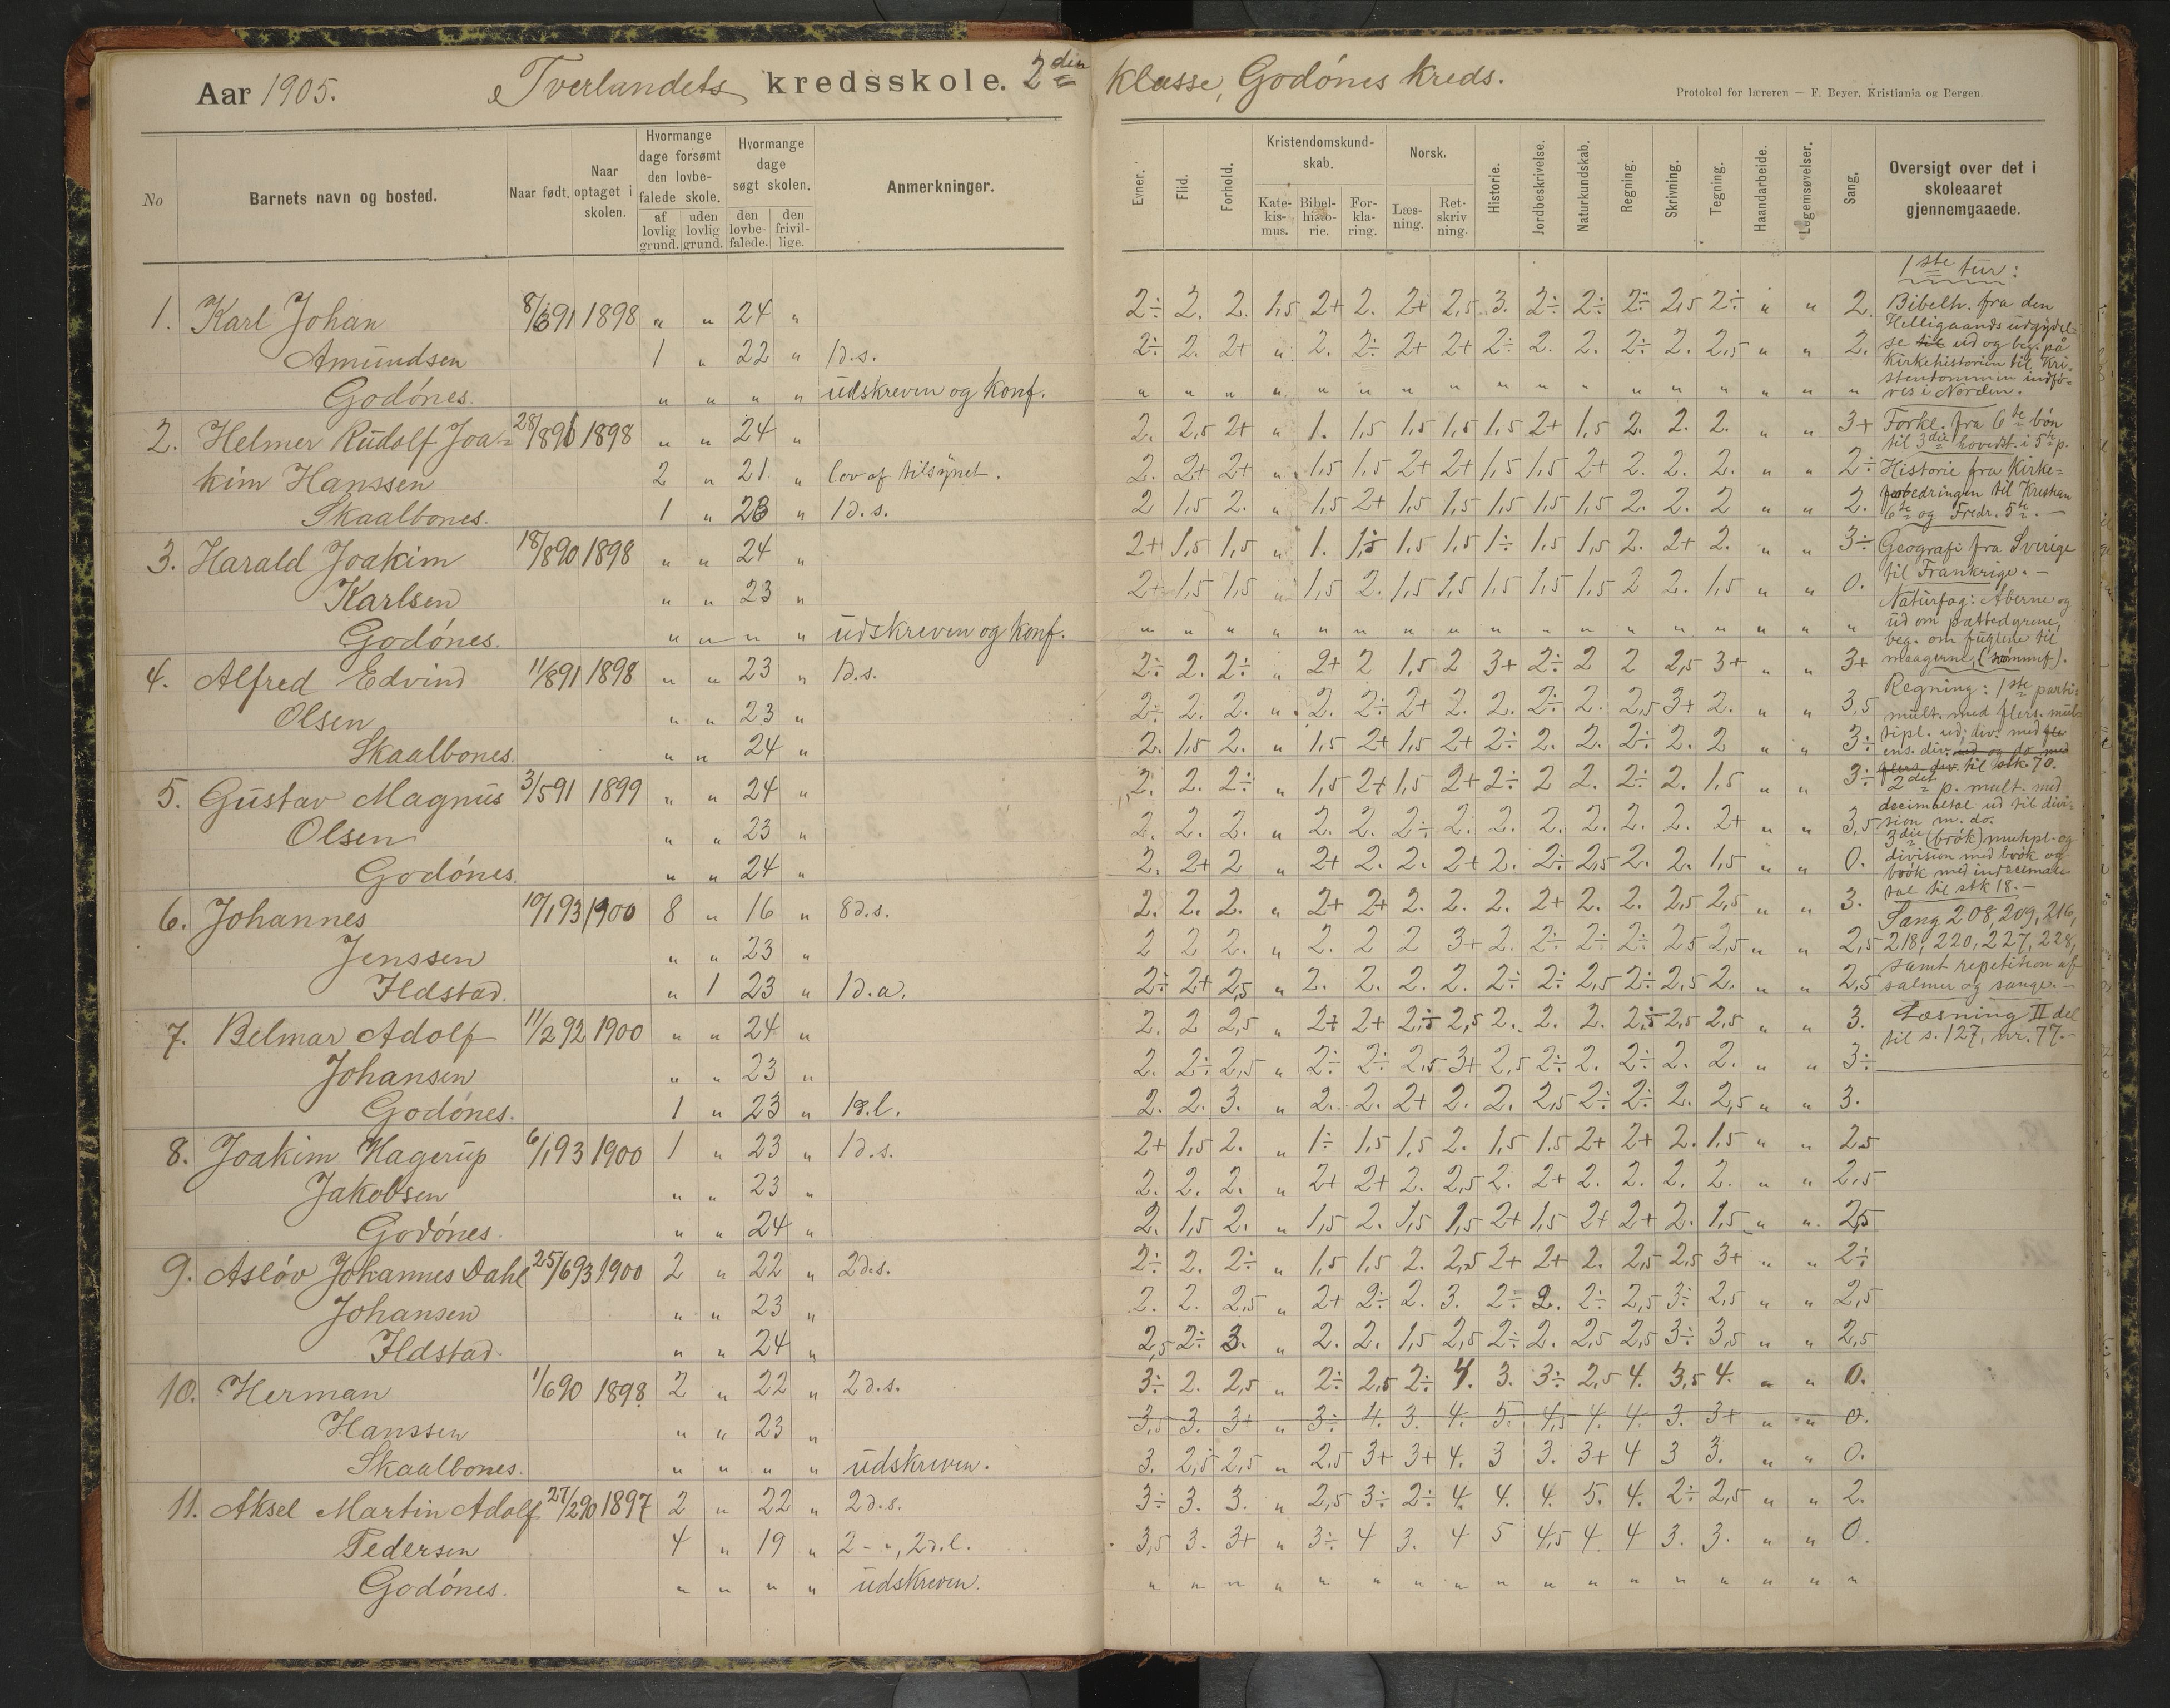 Aar 1905. Tverlandets kredsskole. 2den klasse, Godónes kreds.
Protokol for læreren — F. Beyer, Kristiania og Bergen.
No
Barnets navn og bosted.
Naar født.
Naar optaget i skolen.
Hvormange dage forsømt den lovbefalede skole.
af lovlig grund.
uden lovlig grund.
Hvormange dage søgt skolen.
den lovbefalede.
den frivillige.
Anmerkninger.
Evner.
Flid.
Forhold.
Kristendomskundskab.
Katekismus.
Bibelhistorie.
Forklaring.
Norsk.
Læsning.
Retskrivning.
Historie.
Jordbeskrivelse.
Naturkundskab.
Regning.
Skrivning.
Tegning.
Haandarbeide.
Legemsøvelser.
Sang.
Oversigt over det i skoleaaret gjennemgaaede.
1. Karl Johan 8/6 91 1898 " " 24 " 2÷ 2. 2. 1,5 2+ 2. 2+ 2,5 3. 2÷ 2÷ 2÷ 2,5 2÷ " " 2.
Amundsen 1 " 22 " 1 d.s. 2÷ 2. 2+ " 2. 2÷ 2+ 2+ 2÷ 2. 2. 2÷ 2. 2,5 " " 2.
Godónes. " " " " udskreven og konf. " " " " " " " " " " " " " " " " "
2. Helmer Rudolf Joa- 28/8 91 1898 " " 24 " 2. 2,5 2+ " 1. 1,5 1,5 1,5 1,5 2+ 1,5 2. 2. 2. " " 3+
kim Hanssen 2 " 21. " lov af tilsynet. 2. 2+ 2+ " 1,5 1,5 2+ 2+ 1,5 1,5 2+ 2. 2. 2. " " 2÷
Skaalbones. 1 " 23 " 1 d.s. 2 1,5 2. " 1,5 2+ 1,5 1,5 1,5 1,5 1,5 2. 2. 2 " " 2.
3. Harald Joakim 18/8 90 1898 " " 24 " 2+ 1,5 1,5 " 1. 1,5 1,5 1,5 1÷ 1,5 1,5 2. 2+ 2. " " 3÷
Karlsen " " 23 " 2+ 1,5 1,5 " 1,5 2. 1,5 1,5 1,5 1,5 1,5 2 2. 1,5 " " 0.
Godónes. " " " " udskreven og konf. " " " " " " " " " " " " " " " " "
4. Alfred Edvind 11/8 91 1898 " " 23 " 1 d.s. 2÷ 2. 2÷ " 2+ 2 1,5 2 3+ 2÷ 2 2 2,5 3+ " " 3+
Olsen " " 23 " 2÷ 2. 2. " 2. 2÷ 2+ 2. 2. 2÷ 2. 2,5 3+ 2. " " 3,5
Skaalbones. " " 24 " 2. 1,5 2. " 1,5 2+ 1,5 2+ 2÷ 2. 2. 2÷ 2. 2 " " 3÷
5. Gustav Magnus 3/5 91 1899 " " 24 " 2. 2. 2÷ " 1,5 2+ 1,5 2+ 2÷ 2 2. 2÷ 2. 1,5 " " 3÷
Olsen " " 23 " 2. 2. 2. " 2. 2. 2÷ 2. 2. 2. 2. 2. 2. 2+ " " 3,5
Godónes. " " 24 " 2. 2+ 2 " 2+ 2. 2. 2+ 2. 2÷ 2,5 2. 2. 1,5 " " 0.
6. Johannes 10/1 93 1900 8 " 16 " 8 d.s. 2. 2. 2. " 2+ 2+ 2. 2. 2. 2+ 2. 2. 2,5 2,5 " " 3.
Jenssen " " 23 " 2 2 2. " 2. 2 2 3+ 2. 2÷ 2÷ 2÷ 25 2,5 " " 2,5
Ildstad. " 1 23 " 1 d.a. 2÷ 2+ 2,5 " 2. 2. 2. 2. 2÷ 2÷ 2,5 2÷ 2,5 2. " " 2,5
7. Belmar Adolf 11/2 92 1900 " " 24 " 2. 2 2,5 " 2+ 2+ 2,5 2,5 2. 2. 2. 2,5 2,5 2,5 " " 3.
Johansen " " 23 " 2. 2÷ 2,5 " 2÷ 2÷ 2,5 3+ 2,5 2÷ 2. 2÷ 2. 2. " " 3÷
Godónes. 1 " 23 " 1 d.l. 2. 2. 3. " 2. 2. 2+ 2. 2. 2,5 2÷ 2÷ 2. 2,5 " " 3.
8. Joakim Hagerup 6/1 93 1900 1 " 23 " 1 d.s. 2+ 1,5 2. " 1÷ 1,5 1,5 2. 1,5 1.5 2+ 2+ 2. 1,5 " " 2,5
Jakobsen " " 23 " 2. 2. 2. " 2+ 2+ 2. 2,5 2. 2+ 2. 2. 2. 2. " " 2,5
Godónes. " " 24 " 2. 1,5 2. " 1,5 2. 1,5 1,5 2+ 1,5 2+ 2+ 2. 1,5 " " 2,5
9. Asløv Johannes Dahl 25/6 93 1900 2 " 22 " 2 d.s. 2÷ 2. 2÷ " 1,5 1,5 2. 2,5 2+ 2+ 2. 2,5 2,5 3+ " " 2÷
Johansen " " 23 " 2. 2. 2,5 " 2+ 2÷ 2. 3. 2÷ 2. 2÷ 2,5 3÷ 2,5 " " 2,5
Ildstad. " " 24 " 2,5 2÷ 3. " 2. 2. 1,5 2,5 2÷ 2. 2,5 2,5 3÷ 3,5 " " 2,5
10. Herman 1/6 90 1898 2 " 22 " 2 d.s. 3÷ 2. 2,5 " 2÷ 2,5 2÷ 4. 3. 3÷ 2,5 4. 3,5 4. " " 0.
Hanssen " " 23 " 3,5 3. 3+ " 3÷ 4. 3. 4. 5. 4,5 4. 4. 3. 3+ " " 0.
Skaalbones. " " " " udskreven. 3. 2,5 2,5 " 2,5 3+ 3+ 4. 3 3. 3+ 4 3 3. " " 0.
11. Aksel Martin Adolf 27/2 90 1897 2 " 22 " 2 d.s. 3÷ 3. 3. " 2,5 3÷ 2÷ 4. 4. 4. 5. 4. 2÷ 2,5 " " 2.
Pedersen 4 " 19 " 2 - ", 2 d.l. 3,5 3. 3+ " 3÷ 4 3. 4 5 4,5 4. 4 3. 3. " " 0.
Godónes. " " " " udskreven. " " " " " " " " " " " " " " " " "
1ste tur:
Bibelh. fra den
Helligaands udgydel-
se til ud og beg. på
Kirkehistorien til Kri-
stendommen indfø-
res i Norden.
Forkl. fra 6te bón
til 3die hovedst. i 5te p.
Historie fra Kirke-
forbedringen til Kristian
6te og Fredr. 5te. —
Geografi fra Sverige
til Frankrige. —
Naturfag: Aberne og
ud om pattedyrene,
beg. om fuglene til
maagerne,
Regning: 1ste parti:
mult. med flers. mul-
tipl. ud: div. med fle
ens. div. ud og do. med
flers. div. til stk. 70.
2det p. mult. med
decimaltal ud til divi-
sion m. do.
3die (brók) multpl. og
division med brók og
brók med indecimale
tal til stk 18. —
Sang 208, 209, 216,
218, 220, 227, 228,
samt repetition af
salmer og sange. —
Læsning II del
til s. 127, nr. 77. —